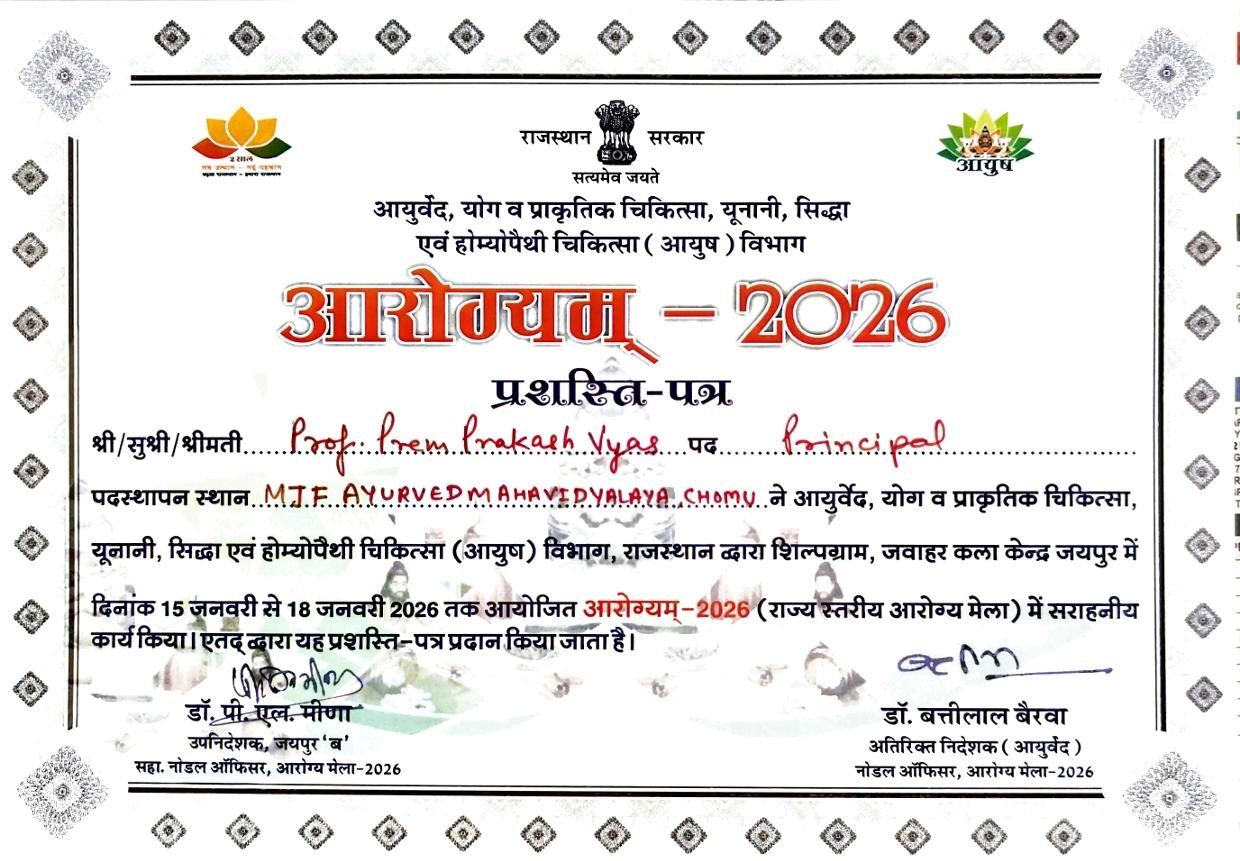 राजस्थान सरकार
सत्यमेव जयते
२ साल
नव उत्थान - नई पहचान
बढ़ता राजस्थान - हमारा राजस्थान
आयुष
आयुर्वेद, योग व प्राकृतिक चिकित्सा, यूनानी, सिद्धा
एवं होम्योपैथी चिकित्सा ( आयुष ) विभाग
आरोग्यम् – 2026
प्रशस्ति-पत्र
श्री/सुश्री/श्रीमती Prof. Prem Prakash Vyas पद Principal
पदस्थापन स्थान MJF AYURVED MAHAVIDYALAYA, CHOMU ने आयुर्वेद, योग व प्राकृतिक चिकित्सा,
यूनानी, सिद्धा एवं होम्योपैथी चिकित्सा (आयुष) विभाग, राजस्थान द्वारा शिल्पग्राम, जवाहर कला केन्द्र जयपुर में
दिनांक 15 जनवरी से 18 जनवरी 2026 तक आयोजित आरोग्यम्-2026 (राज्य स्तरीय आरोग्य मेला) में सराहनीय
कार्य किया। एतद् द्वारा यह प्रशस्ति-पत्र प्रदान किया जाता है।
डॉ. पी. एल. मीणा
उपनिदेशक, जयपुर 'ब'
सहा. नोडल ऑफिसर, आरोग्य मेला-2026
डॉ. बत्तीलाल बैरवा
अतिरिक्त निदेशक ( आयुर्वेद )
नोडल ऑफिसर, आरोग्य मेला-2026